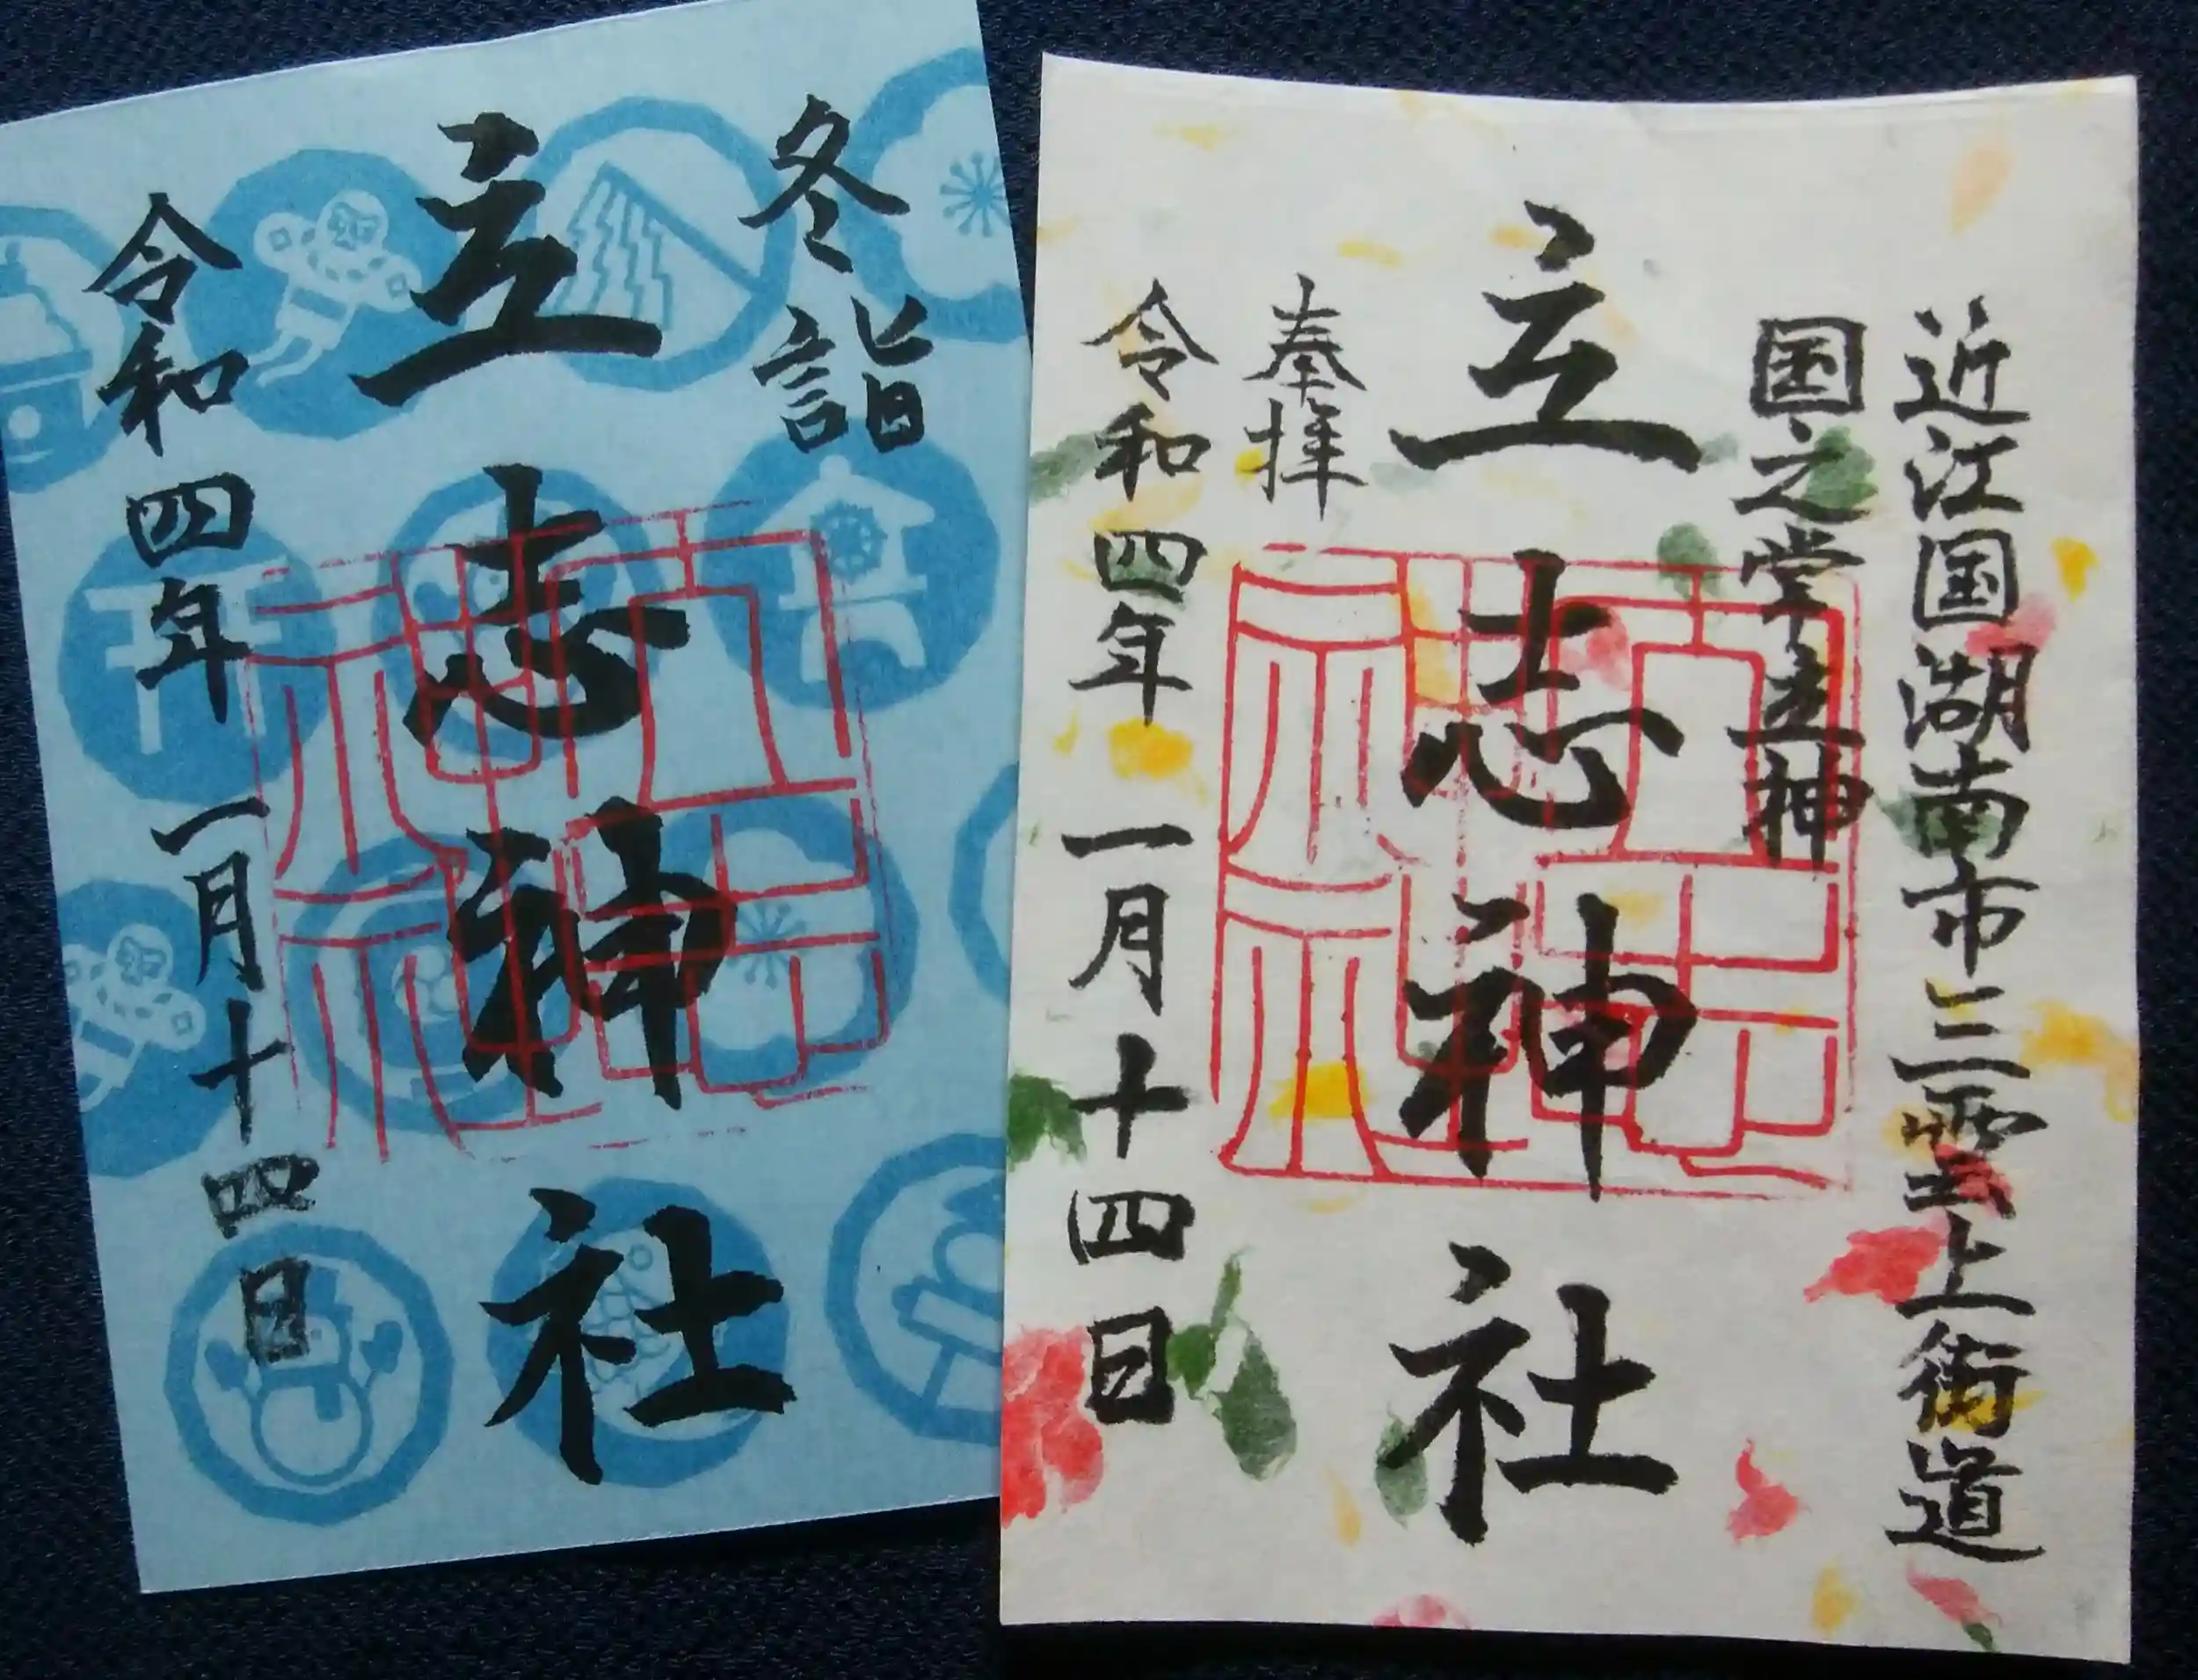 冬詣
立志神社
令和四年一月十四日
近江国湖南市三雲上街道
国之常立神
立志神社
奉拝
令和四年一月十四日